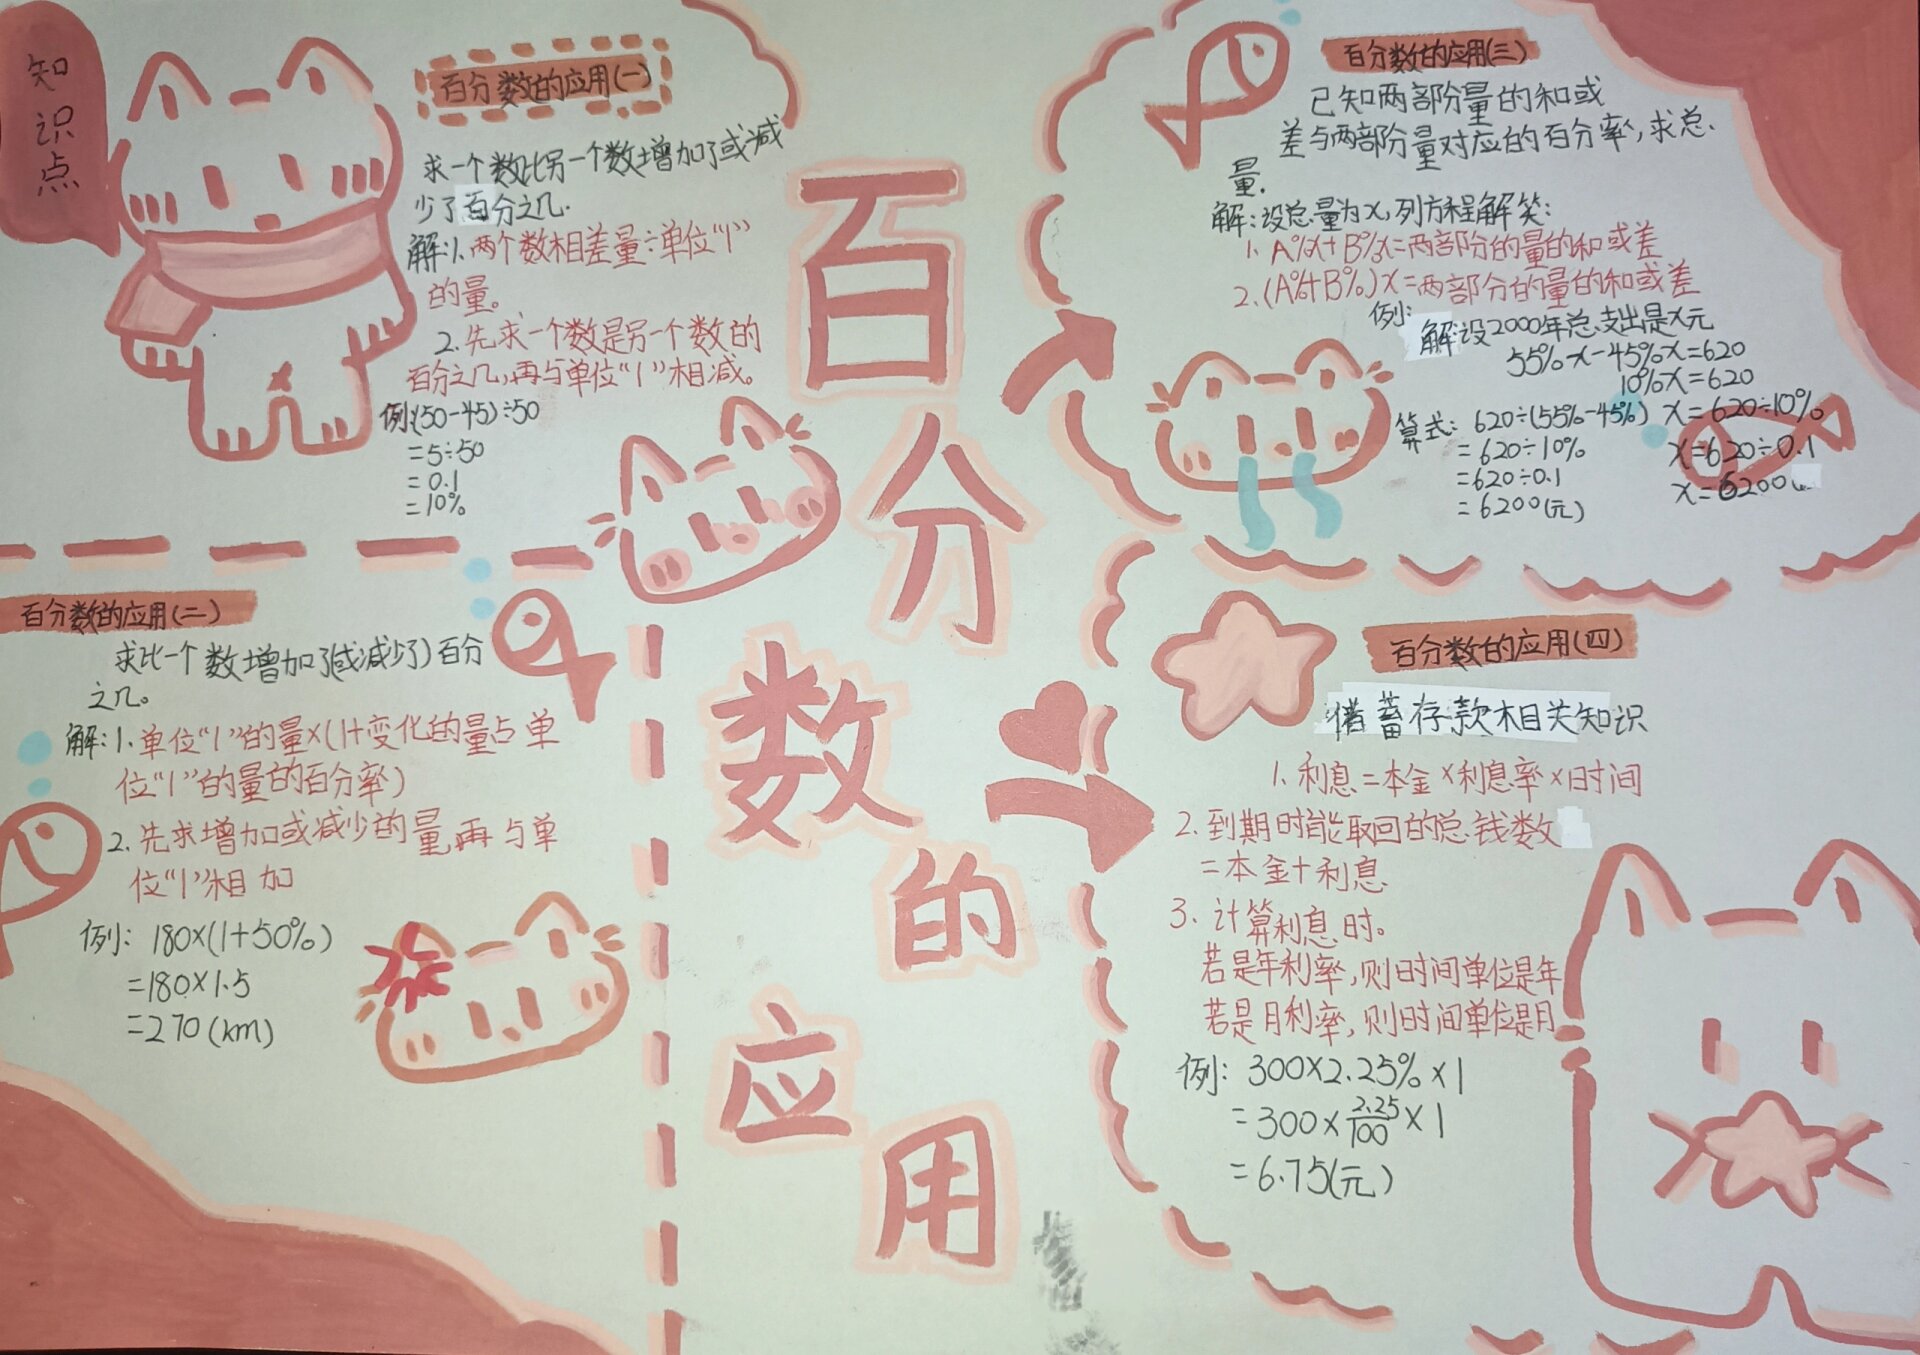 知
识
点
百分数的应用(一)
求一个数比另一个数增加了或减
少了百分之几.
解:1.两个数相差量÷单位“1”
的量。
2.先求一个数是另一个数的
百分之几,再与单位“1”相减。
例:(50-45)÷50
=5÷50
=0.1
=10%
百分数的应用(二)
求比一个数增加了(或减少了)百分
之几。
解:1.单位“1”的量×(1+变化的量占单
位“1”的量的百分率)
2.先求增加或减少的量,再与单
位“1”相加
例: 180×(1+50%)
=180×1.5
=270(km)
百
分
数
的
应
用
百分数的应用(三)
已知两部分量的和或
差与两部分量对应的百分率,求总
量.
解:设总量为x,列方程解答:
1. A%x+B%x=两部分的量的和或差
2.(A%+B%)x=两部分的量的和或差
例:
解设2000年总支出是x元
55%x-45%x=620
10%x=620
x=620÷10%
x=620÷0.1
x=6200
算式: 620÷(55%-45%)
=620÷10%
=620÷0.1
=6200(元)
百分数的应用(四)
储蓄存款相关知识
1.利息=本金×利息率×时间
2.到期时能取回的总钱数
=本金+利息
3.计算利息时。
若是年利率,则时间单位是年
若是月利率,则时间单位是月
例: 300×2.25%×1
=300×2.25/100×1
=6.75(元)